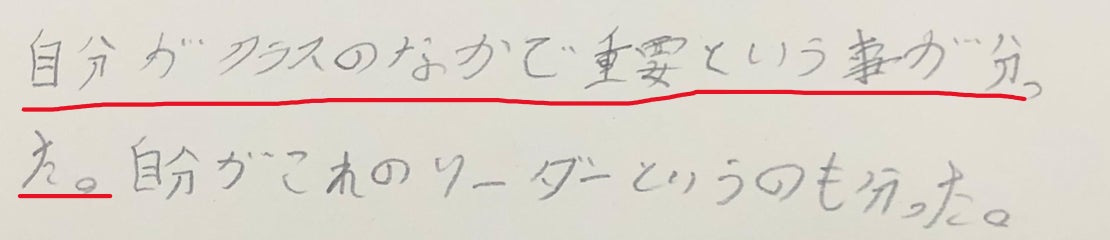 自分がクラスのなかで重要という事が分っ
た。自分がこれのリーダーというのも分った。